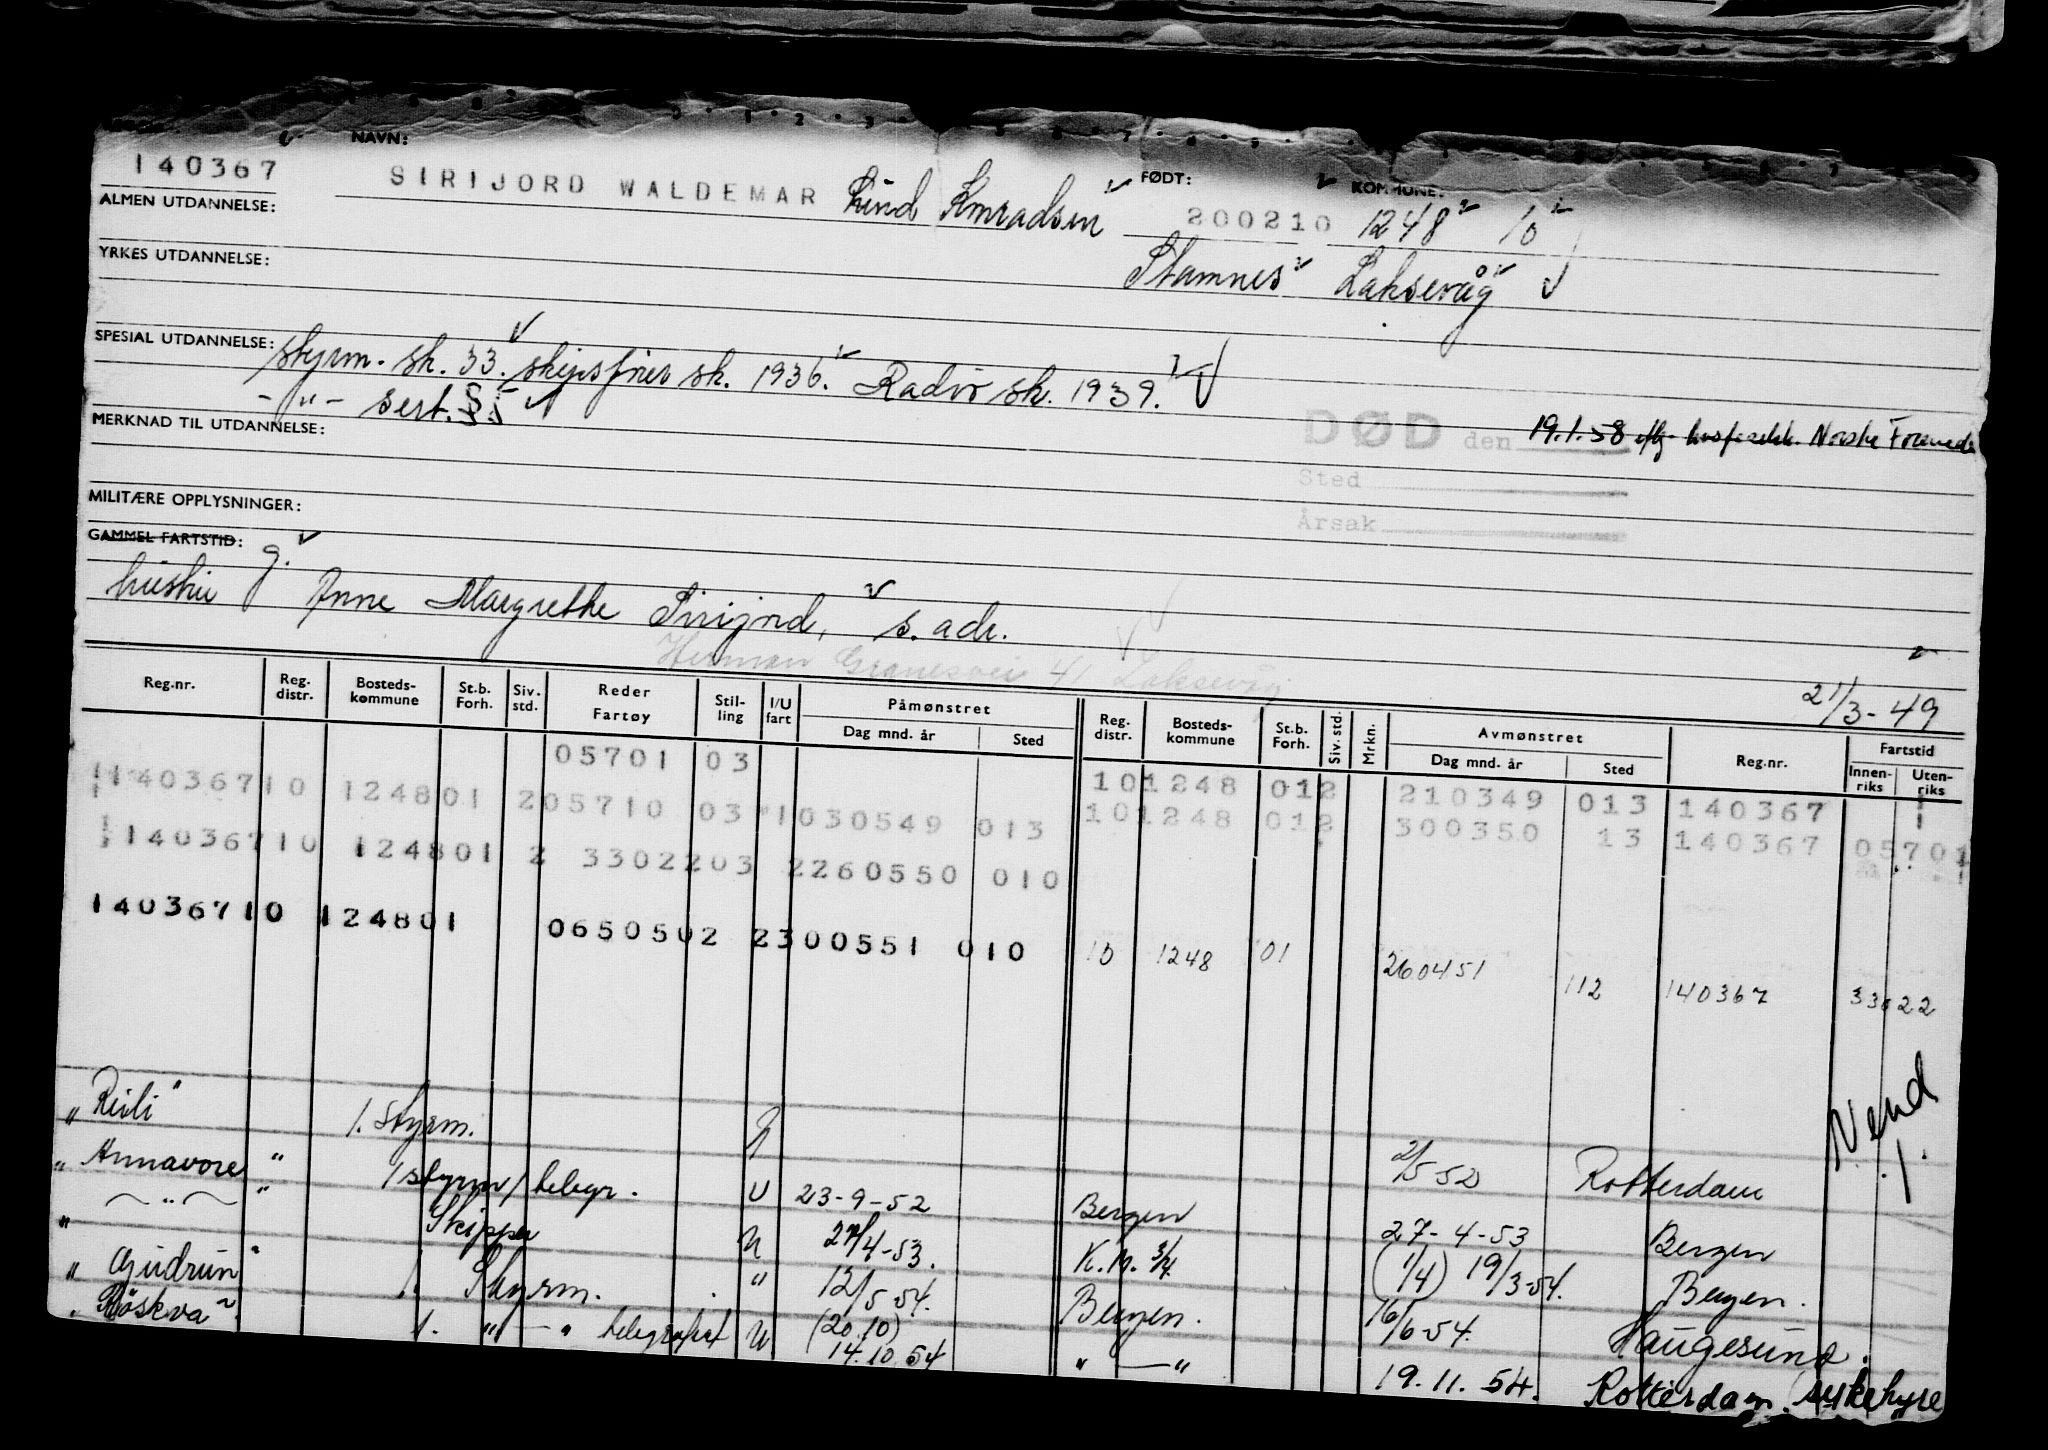 NAVN:
140367 SIRIJORD WALDEMAR Lind Konradsen FØDT: 200210 KOMMUNE: 1248 10
ALMEN UTDANNELSE:
Stamnes Laksevåg
YRKES UTDANNELSE:
SPESIAL UTDANNELSE: styrm. sk. 33. skipsfører sk. 1936. Radio sk. 1939.
- " - sert.
MERKNAD TIL UTDANNELSE:
DØD den 19.1.58 Norske Forenede
Sted
MILITÆRE OPPLYSNINGER:
Årsak
GAMMEL FARTSTID:
g.
hustru Anne Margrethe Sirijord, s. adr.
Herman Granesvei 41 Laksevåg
21/3-49
Reg.nr. Reg. distr. Bosteds-kommune St.b. Forh. Siv. std. Reder Fartøy Stil-ling I/U fart Påmønstret Dag mnd. år Sted Reg. distr. Bosteds-kommune St.b. Forh. Siv. std. Mrkn. Avmønstret Dag mnd. år Sted Reg.nr. Fartstid Innen-riks Uten-riks
05701 03 101248 012 210349 013 140367
14036710 124801 205710 03 1030549 013 101248 012 300350 13 140367 05701
14036710 124801 2 3302203 2260550 010
14036710 124801 0650502 2300551 010 10 1248 01 260451 112 140367 33022
" " 1. styrm. 2/5 52 Rotterdam
"Annavore" 1 styrm/telegr. U 23-9-52 Bergen 27-4-53 Bergen
— " — " Skipper U 27/4-53. K.m. 3/4 (1/4) 19/3-54. Bergen.
"Gudrun" 1. Styrm. " 12/5 54. Bergen. 16/6-54. Haugesund.
"Röskva" 1. " — " telegrafist U (20.10) 14.10 54 " — " 19.11.54. Rotterdam. (sykehyre
Vend!